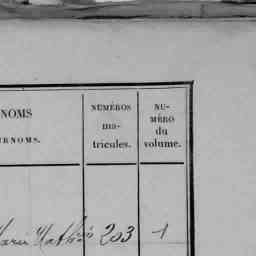 NOMS
URNOMS.
NUMÉROS
ma-
tricules.
NU-
MÉRO
du
volume.
Marie Mathieu 203 1